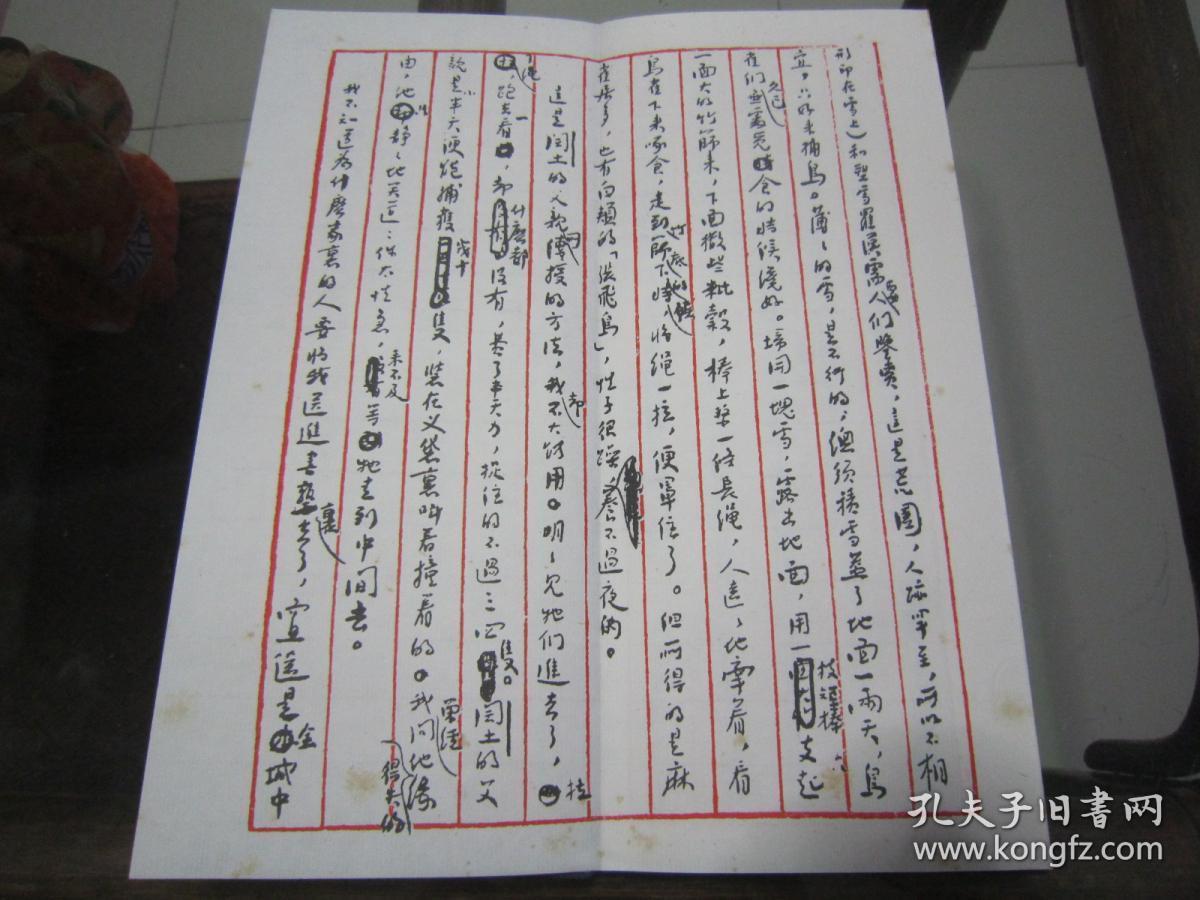 形印在雪上)和塑雪羅漢需要人们鑒賞,這是荒園,人跡罕至,所以不相
宜,只好来捕鳥。薄〻的雪,是不行的;總須積雪蓋了地面一兩天,鳥
雀们久已無處覓食的時候纔好。掃開一塊雪,露出地面,用一枝短棒支起
一面大的竹篩来,下面撒些秕穀,棒上系一條長绳,人遠〻地牽着,看
鳥雀下来啄食,走到竹篩底下的時候,将绳一拉,便罩住了。但所得的是麻
雀居多,也有白頰的「張飛鳥」,性子很躁,養不過夜的。
這是闰土的父親所傳授的方法,我却不大能用。明〻見牠们進去了,拉
了绳,跑去看,却什麽都没有,費了半天力,捉住的不過三四隻。闰土的父
親是小半天便能捕獲幾十隻,裝在叉袋裏叫着撞着的。我曾經問他得失的缘
由,他只静〻地笑道:你太性急,来不及等牠走到中间去。
我不知道為什麽家裏的人要将我送進書塾裏去了,而且還是全城中
孔夫子旧书网
www.kongfz.com